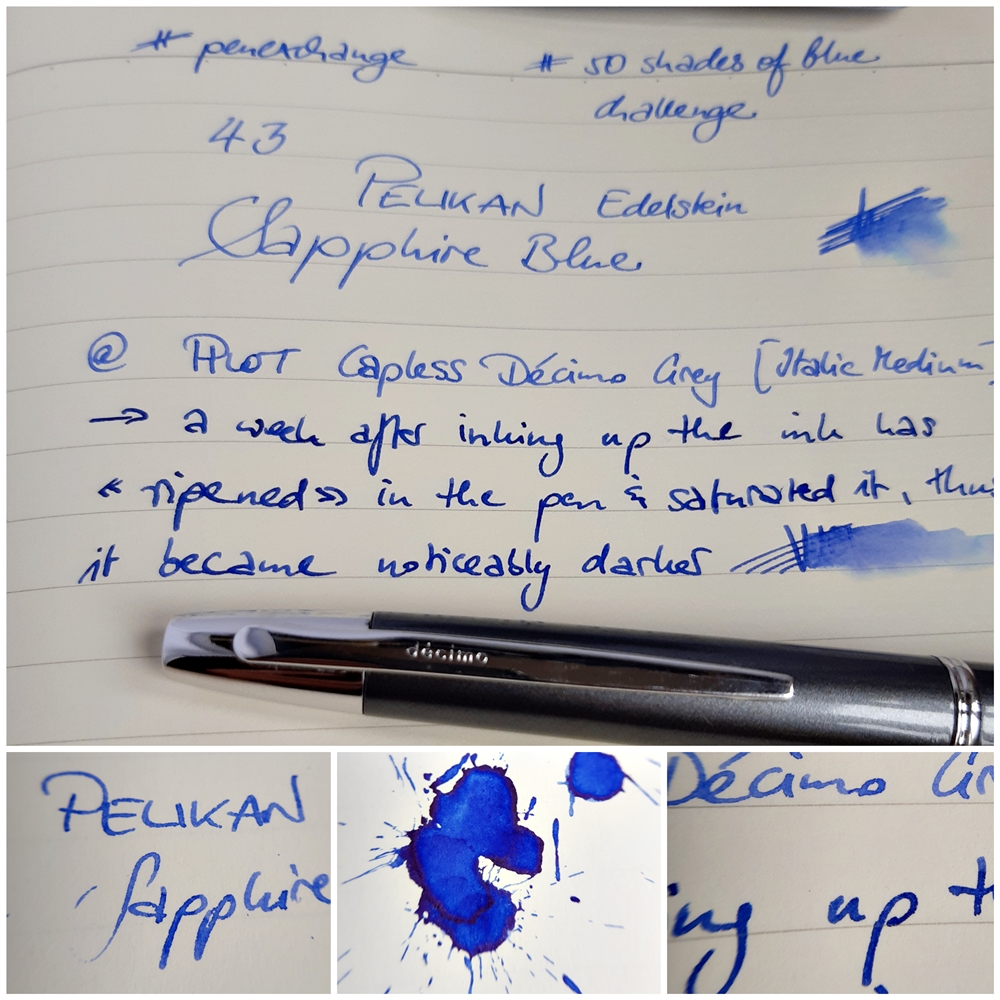 # penexchange # 50 shades of blue
challenge
43
PELIKAN Edelstein
Sapphire Blue
@ PILOT Capless Décimo Grey [Italic Medium]
→ a week after inking up the ink has
« ripened » in the pen & saturated it, thus
it became noticeably darker
décimo
PELIKAN
Sapphire
Décimo Gr
ing up t